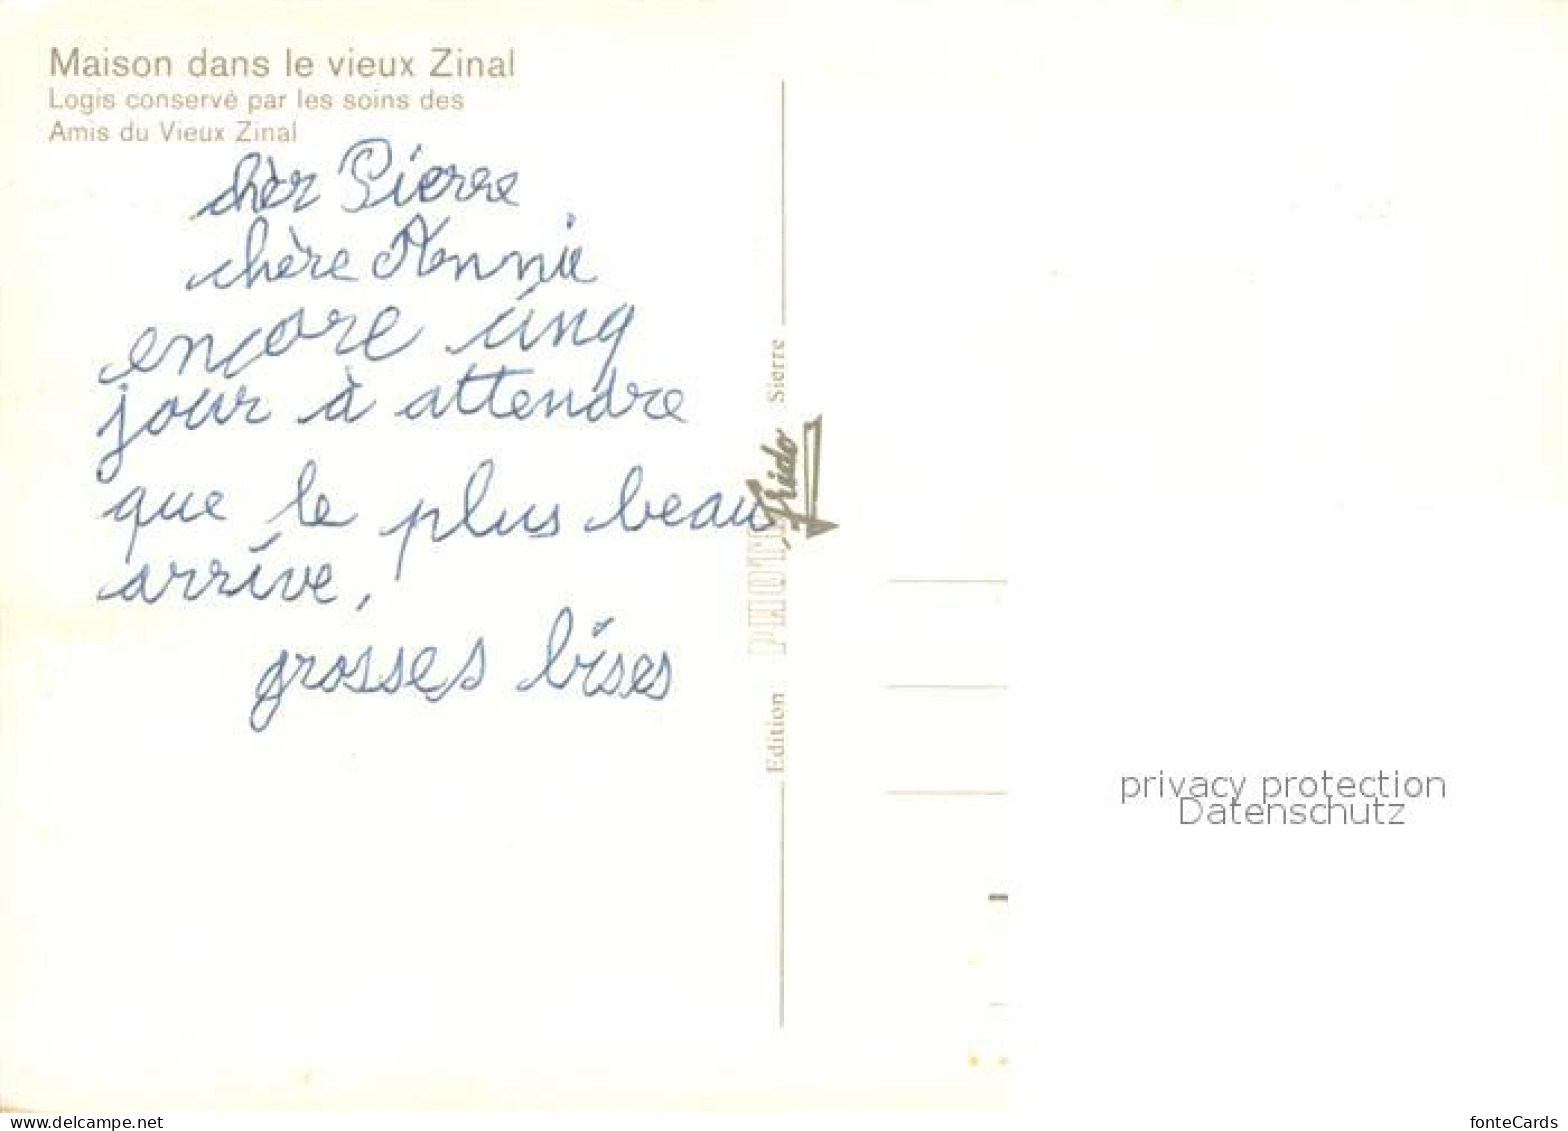 Maison dans le vieux Zinal
Logis conservé par les soins des
Amis du Vieux Zinal
chèr Pierre
chère Annie
encore cinq
jour à attendre
que le plus beau
arrive,
grosses bises
Edition PHOTO Frido Sierre
privacy protection
Datenschutz
www.delcampe.net
fonteCards